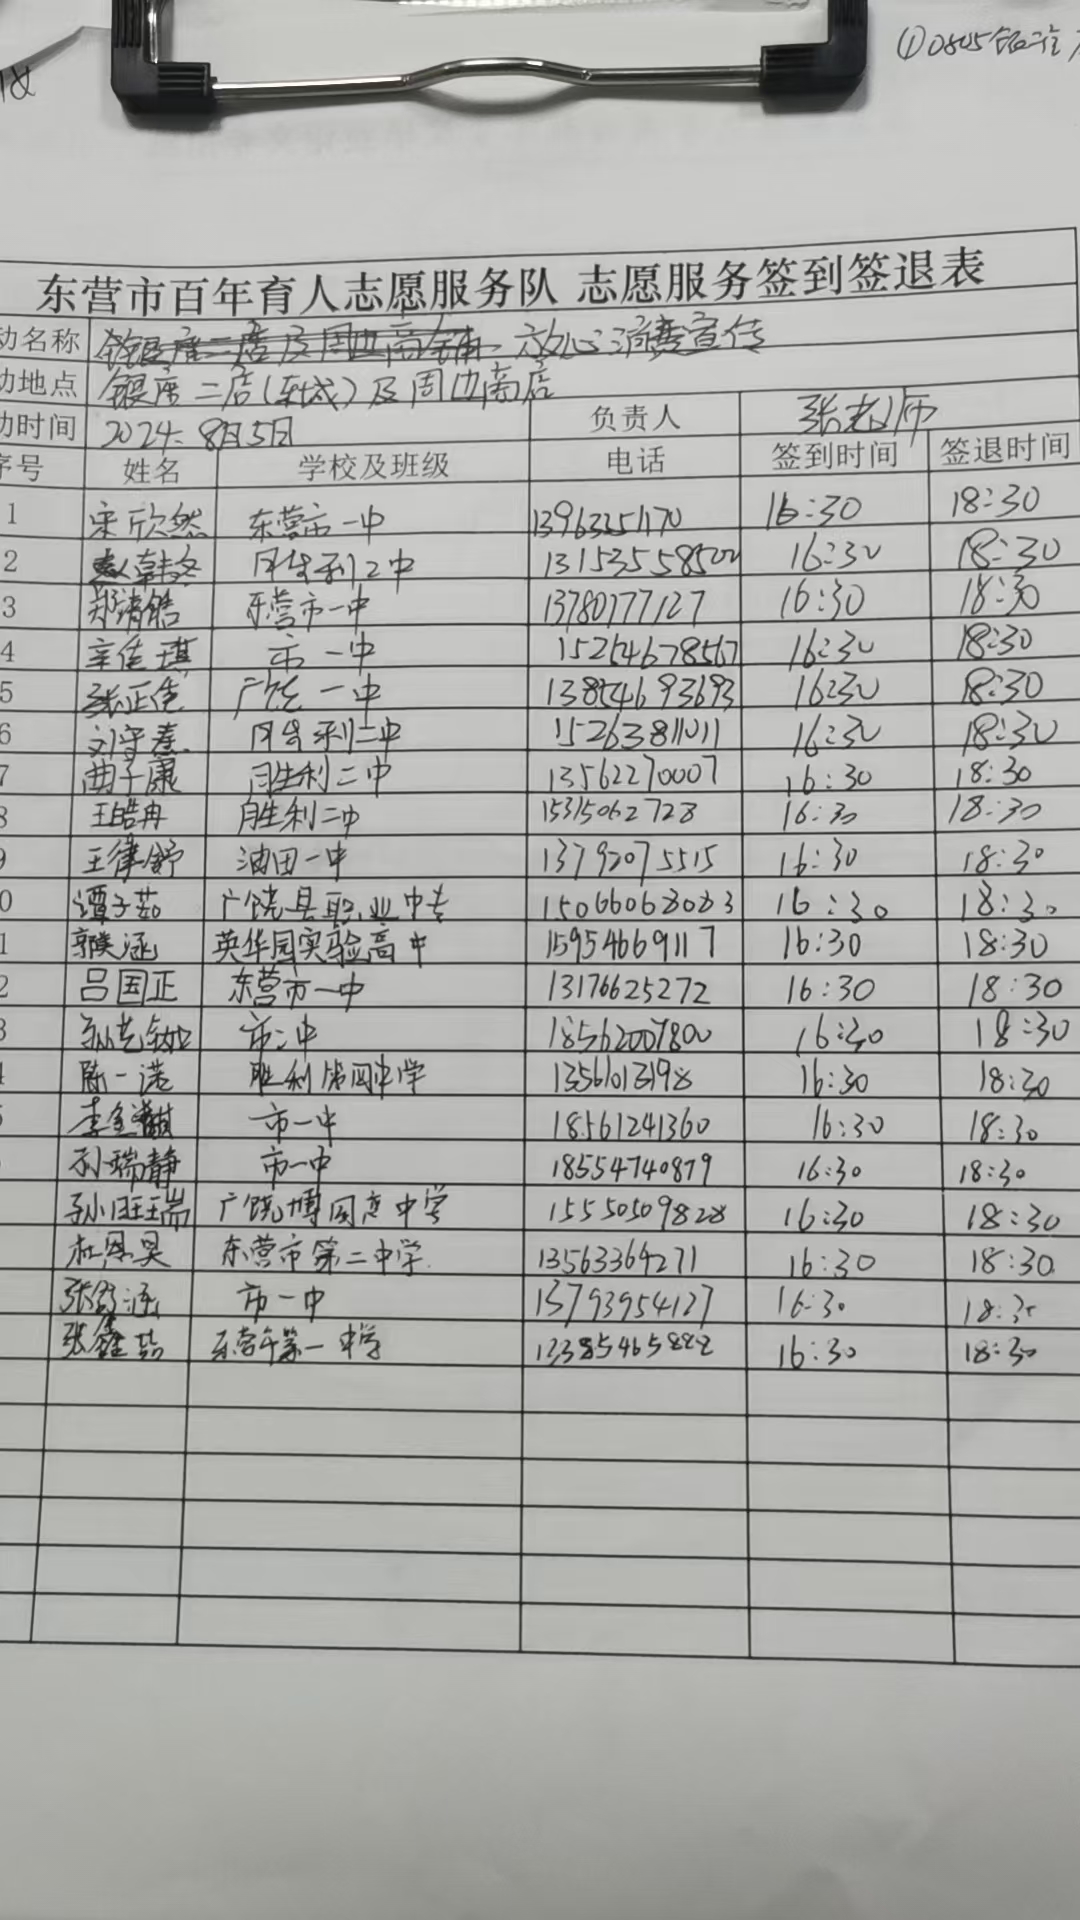 东营市百年育人志愿服务队 志愿服务签到签退表
动名称 放心消费宣传
动地点 银座二店(东城)及周边商店
动时间 2024.8月5日 负责人 张老师
序号 姓名 学校及班级 电话 签到时间 签退时间
1 宋欣然 东营市一中 13963251170 16:30 18:30
2 胜利二中 16:30 18:30
3 郑清皓 东营市一中 13780777127 16:30 18:30
4 辛佳琪 市一中 15254678567 16:30 18:30
5 广饶一中 13854693693 16:30 18:30
6 刘守熹 胜利二中 15263811011 16:30 18:30
7 曲子康 胜利二中 13562270007 16:30 18:30
8 王皓冉 胜利二中 15315062728 16:30 18:30
9 王肄舒 油田一中 13792075515 16:30 18:30
0 谭子茹 广饶县职业中专 15066068083 16:30 18:30
1 英华园实验高中 15954669117 16:30 18:30
2 吕国正 东营市一中 13176625272 16:30 18:30
3 市二中 18562007800 16:30 18:30
4 陈一诺 胜利第四中学 13561013198 16:30 18:30
5 李金麒 市一中 18561241360 16:30 18:30
孙瑞静 市一中 18554740879 16:30 18:30
孙旺瑞 中学 15550509828 16:30 18:30
杜恩昊 东营市第二中学 13563364271 16:30 18:30
市一中 13793954127 16:30 18:30
张鑫茹 东营市第一中学 16:30 18:30